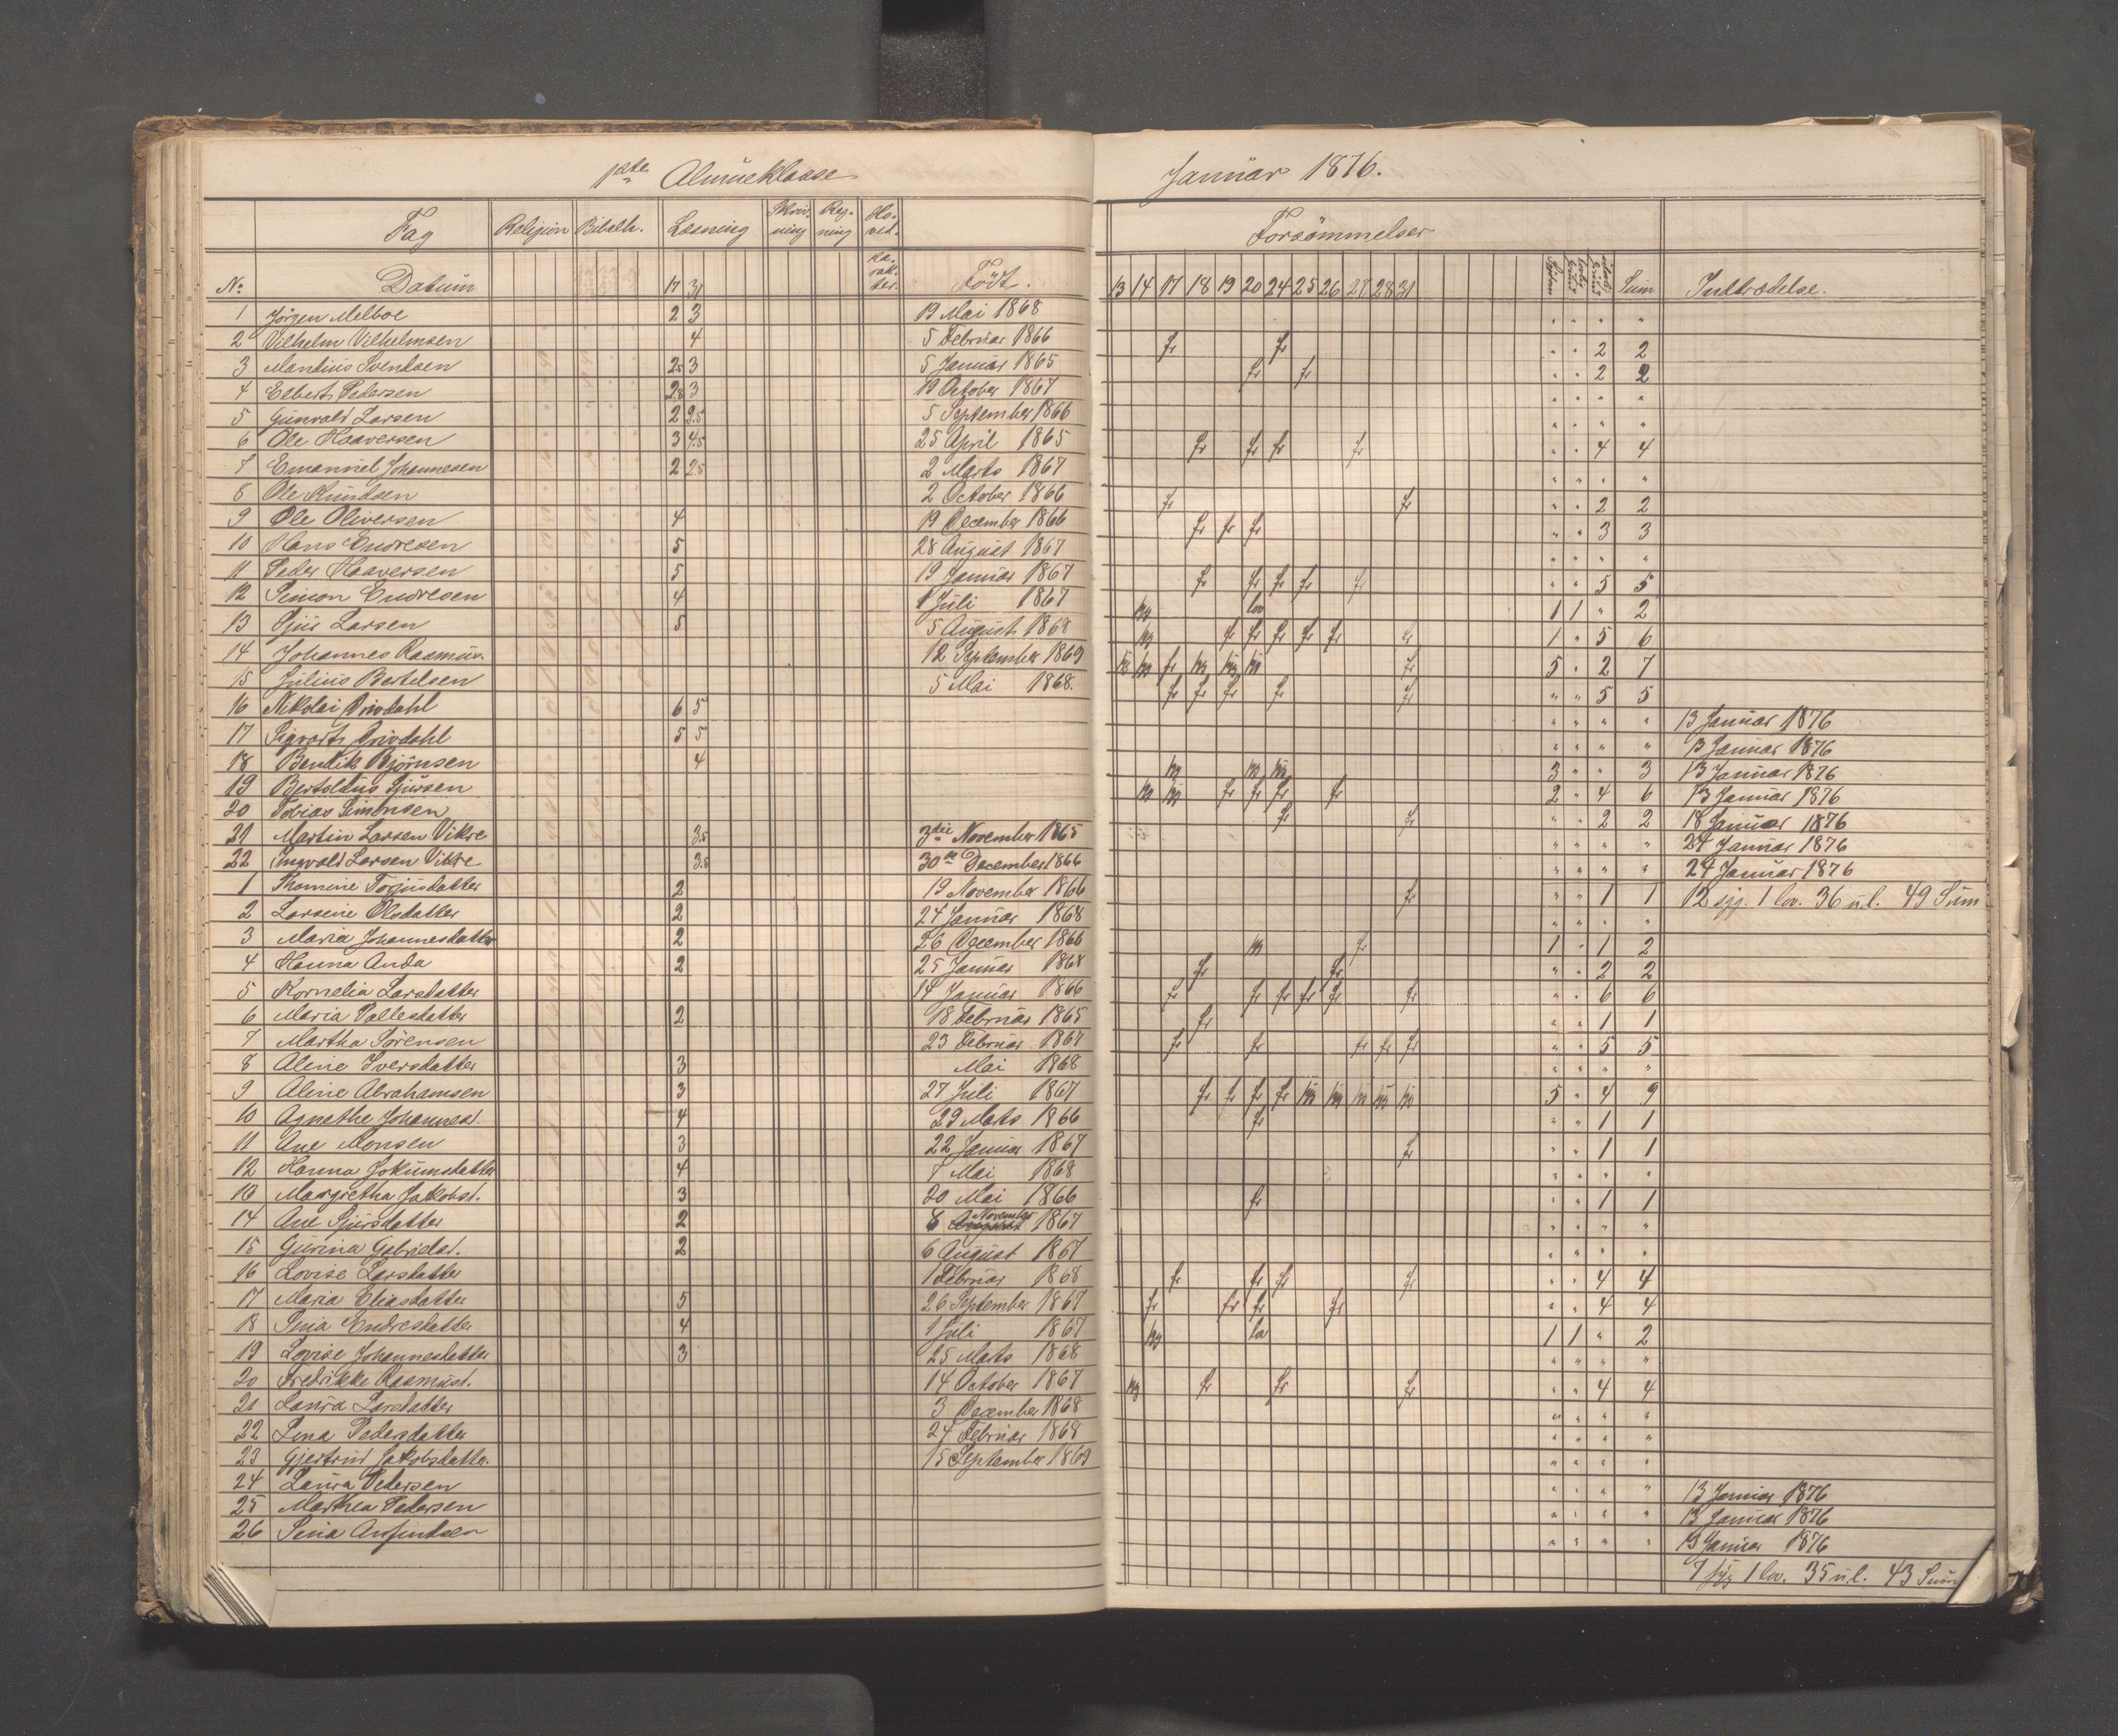 1ste Almueklasse
Januar 1876.
Fag Religion Bibelh. Læsning Skriv-ning Reg-ning Ho-ved-ka-rak-ter. Forsømmelser
No Datum 17 31 Født. 13 14 17 18 19 20 24 25 26 27 28 31 Sum Indtrædelse.
1 Jørgen Melboe 2 3 19 Mai 1868 " " " "
2 Vilhelm Vilhelmsen 4 5 Februar 1866 fr fr " " 2 2
3 Mandius Svendsen 2.5 3 5 Januar 1865 fr fr " " 2 2
4 Elbert Pedersen 2.8 3 19 October 1867 " " " "
5 Gunvald Larsen 2 2.5 5 September 1866 " " " "
6 Ole Haaversen 3 4.5 25 April 1865 fr fr fr fr " " 4 4
7 Emanuel Johannesen 2 2.5 2 Marts 1867 " " " "
8 Ole Knudsen 2 October 1866 fr fr " " 2 2
9 Ole Oliversen 4 19 December 1866 fr fr fr " " 3 3
10 Hans Endresen 5 28 August 1867 " " " "
11 Peder Haaversen 5 19 Januar 1867 fr fr fr fr fr " " 5 5
12 Simon Endresen 4 1 Juli 1867 syg lov 1 1 " 2
13 Sjur Larsen 5 5 August 1868 syg fr fr fr fr fr fr 1 " 5 6
14 Johannes Rasmus. 12 September 1869 syg syg fr syg syg syg fr 5 " 2 7
15 Julius Bertelsen 5 Mai 1868. fr fr fr fr fr " " 5 5
16 Nikolai Drivdahl 6 5 " " " " 13 Januar 1876
17 Sigvart Drivdahl 5 5 " " " " 13 Januar 1876
18 Bendik Bjørnsen 4 syg syg syg 3 " " 3 13 Januar 1876
19 Bertoldus Sjursen syg syg fr fr fr fr 2 " 4 6 13 Januar 1876
20 Tobias Simonsen fr fr " " 2 2 18 Januar 1876
21 Martin Larsen Vikre 3.5 3die November 1865 " " " " 24 Januar 1876
22 Ingvald Larsen Vikre 3.5 30te December 1866 " " " " 24 Januar 1876
1 Thomine Torjusdatter 2 19 November 1866 fr " " 1 1 12 syg. 1 lov. 36 u.l. 49 Sum
2 Larsine Olsdatter 2 24 Januar 1868 " " " "
3 Maria Johannesdatter 2 26 December 1866 syg fr 1 " 1 2
4 Hanna Anda 2 25 Januar 1868 fr fr " " 2 2
5 Kornelia Larsdatter 14 Januar 1866 fr fr fr fr fr fr " " 6 6
6 Maria Pallesdatter 2 18 Februar 1865 fr " " 1 1
7 Martha Sørensen 23 Februar 1867 fr fr fr fr fr " " 5 5
8 Aline Iversdatter 3 Mai 1868 " " " "
9 Aline Abrahamsen 3 27 Juli 1867 fr fr fr fr syg syg syg syg syg 5 " 4 9
10 Agnethe Johannesd. 4 29 Marts 1866 fr " " 1 1
11 Ane Monsen 3 22 Januar 1867 fr " " 1 1
12 Hanna Jokumsdatter 4 7 Mai 1868 " " " "
13 Margretha Jakobsd. 3 20 Mai 1866 fr " " 1 1
14 Ane Sjursdatter 2 8 November 1867 " " " "
15 Gurina Gabrielsd. 2 6 August 1867 " " " "
16 Lovise Larsdatter 1 Februar 1868 fr fr fr fr " " 4 4
17 Maria Eliasdatter 5 26 September 1867 fr fr fr fr " " 4 4
18 Sina Endresdatter 4 1 Juli 1867 syg lov 1 1 " 2
19 Lovise Johannesdatter 3 25 Marts 1868 " " " "
20 Fredrikke Rasmusd. 14 October 1867 syg fr fr fr " " 4 4
21 Laura Larsdatter 3 December 1868 " " " "
22 Lina Pedersdatter 24 Februar 1868 " " " "
23 Gjertrud Jakobsdatter. 15 September 1869 " " " "
24 Laura Pedersen " " " " 13 Januar 1876
25 Marthea Pedersen " " " " 13 Januar 1876
26 Sina Arnfindsen " " " " 19 Januar 1876
7 syg 1 lov. 35 u.l. 43 Sum